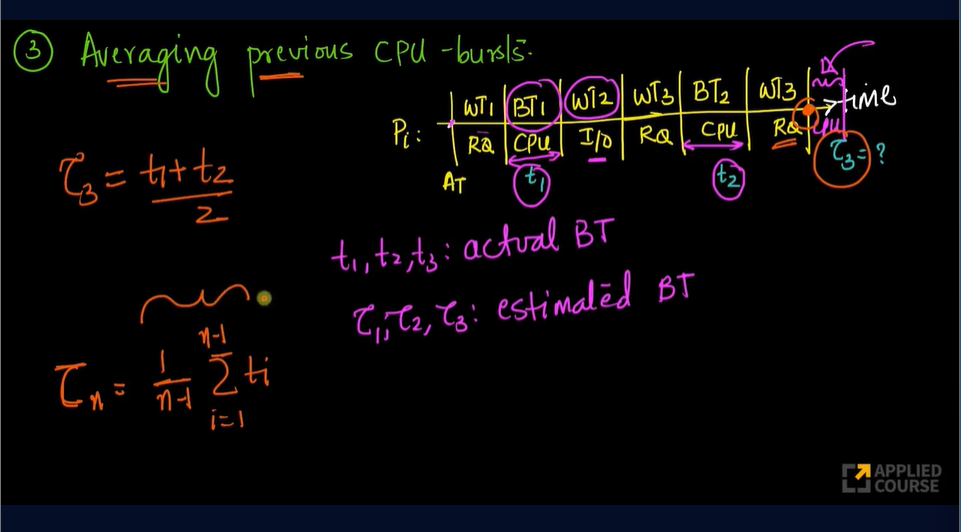 ③ Averaging previous CPU-bursts.
WT1 BT1 WT2 WT3 BT2 WT3 time
Pi: RQ CPU I/O RQ CPU RQ CPU
AT t1 t2 τ3 = ?
τ3 = t1 + t2
2
t1, t2, t3: actual BT
τ1, τ2, τ3: estimated BT
n-1
τn = 1/n-1 Σ ti
i=1
APPLIED
COURSE